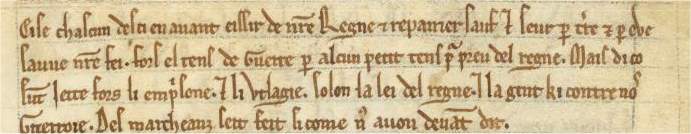 Lise chascun desci en auant eissir de nr̄e Regne ⁊ repairier sauf ⁊ seur ꝑ t̄re ⁊ ꝑ eve
sauue nr̄e fei. fors el tens de Guerre ꝑ alcun petit tens pͬ preu del regne. Mais dico
sūt Jette fors li empͥsone. ⁊ li Vtlagie. solon la lei del regne. ⁊ la gent ki contre nos
Guerroie. Del marcheanz seit feit si come nͦ auon deuāt dit.